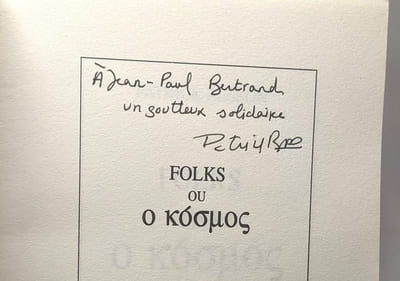 À Jean-Paul Bertrand
un goutteux solidaire
FOLKS
OU
ο κόσμος